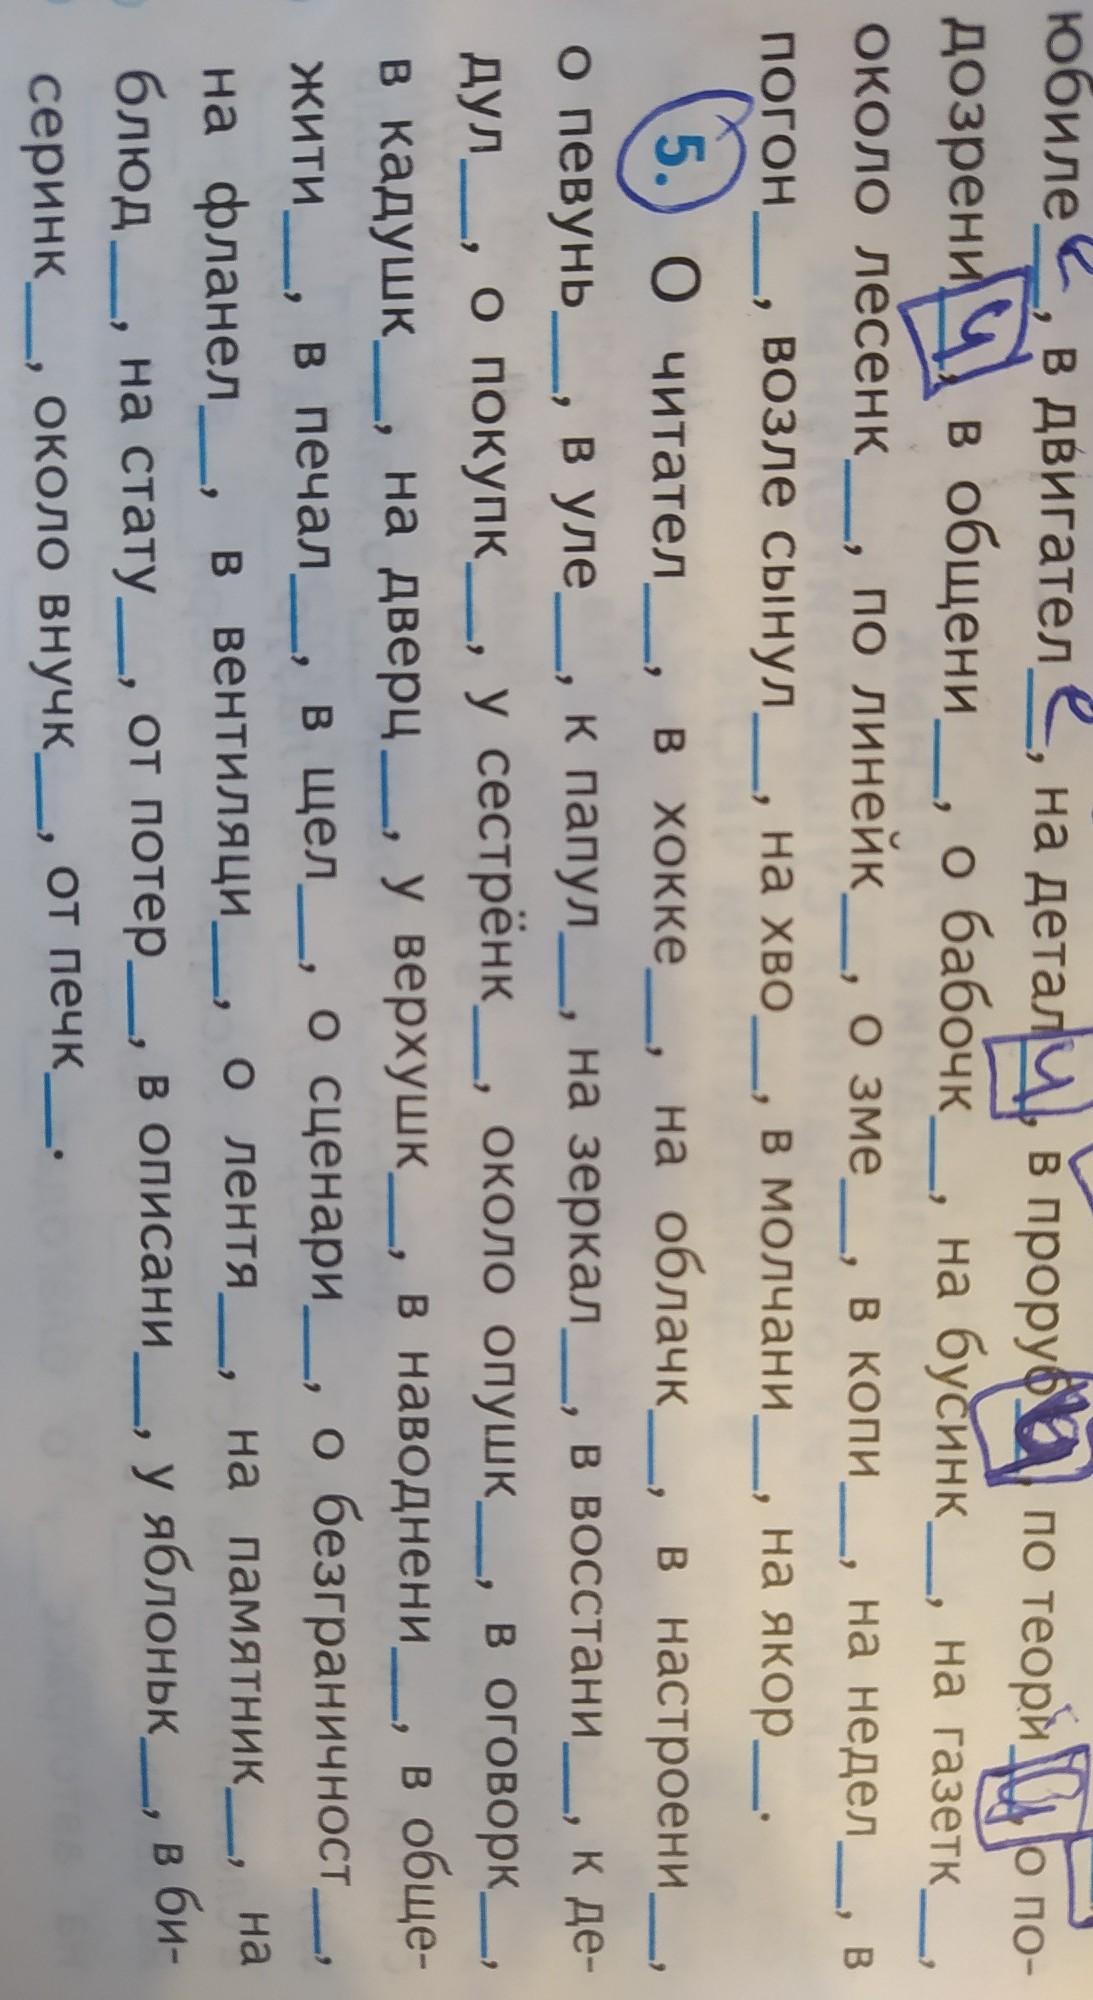 юбиле__е, в двигател__е, на детал__и, в проруб__и, по теори__и, о по-
дозрени__и, в общени__, о бабочк__, на бусинк__, на газетк__,
около лесенк__, по линейк__, о зме__, в копи__, на недел__, в
погон__, возле сынул__, на хво__, в молчани__, на якор__.
5. О читател__, в хокке__, на облачк__, в настроени__,
о певунь__, в уле__, к папул__, на зеркал__, в восстани__, к де-
дул__, о покупк__, у сестрёнк__, около опушк__, в оговорк__,
в кадушк__, на дверц__, у верхушк__, в наводнени__, в обще-
жити__, в печал__, в щел__, о сценари__, о безграничност__,
на фланел__, в вентиляци__, о лентя__, на памятник__, на
блюд__, на стату__, от потер__, в описани__, у яблоньк__, в би-
серинк__, около внучк__, от печк__.